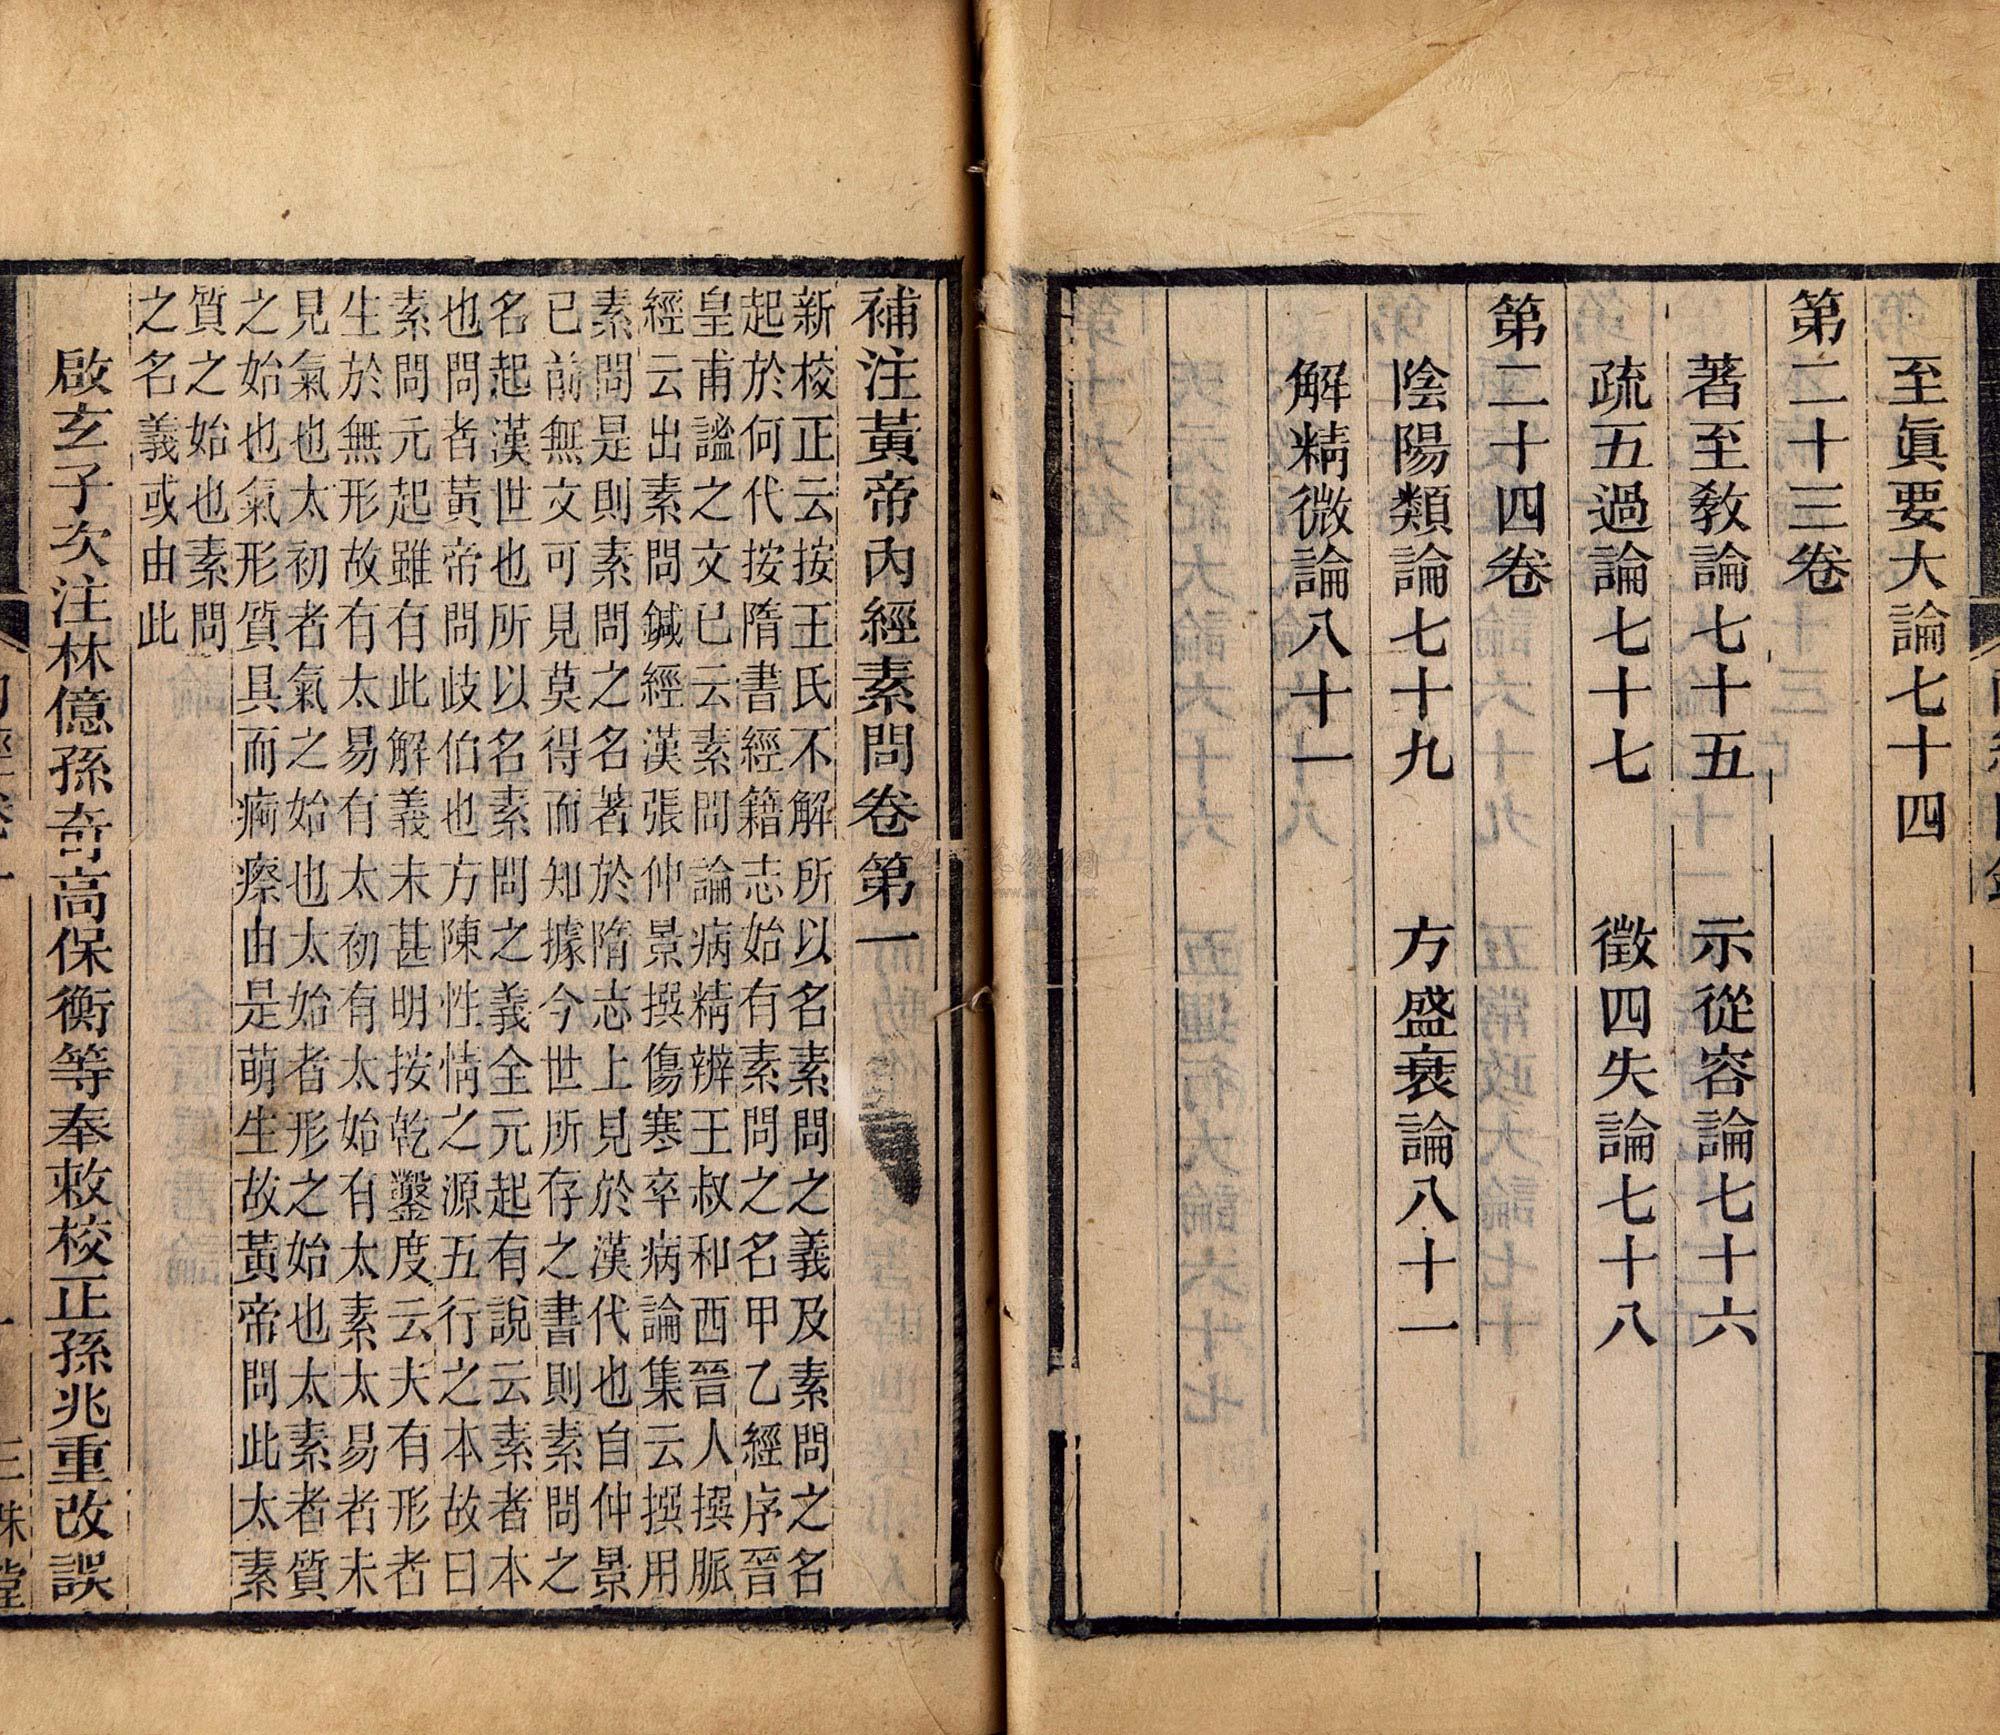 至眞要大論七十四
第二十三卷
著至敎論七十五 示從容論七十六
疏五過論七十七 徵四失論七十八
第二十四卷
陰陽類論七十九 方盛衰論八十一
解精微論八十一
補注黃帝內經素問卷第一
新校正云按王氏不解所以名素問之義及素問之名
起於何代按隋書經籍志始有素問之名甲乙經序晉
皇甫謐之文已云素問論病精辨王叔和西晉人撰脈
經云出素問鍼經漢張仲景撰傷寒卒病論集云撰用
素問是則素問之名著於隋志上見於漢代也自仲景
已前無文可見莫得而知據今世所存之書則素問之
名起漢世也所以名素問之義全元起有說云素者本
也問者黃帝問歧伯也方陳性情之源五行之本故曰
素問元起雖有此解義未甚明按乾鑿度云夫有形者
生於無形故有太易有太初有太始有太素太易者未
見氣也太初者氣之始也太始者形之始也太素者質
之始也氣形質具而痾瘵由是萌生故黃帝問此太素
質之始也素問
之名義或由此
啟玄子次注林億孫奇高保衡等奉敕校正孫兆重改誤